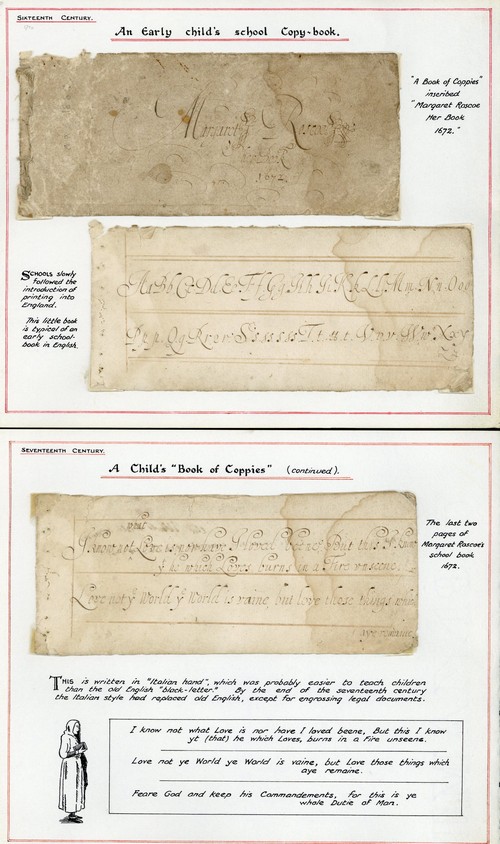 SIXTEENTH CENTURY.
An Early child's school Copy-book.
"A Book of Coppies"
inscribed
"Margaret Rascoe
Her Book
1672."
Margarett Rascoe
her Book
1672
SCHOOLS slowly
followed the
introduction of
printing into
England.
This little book
is typical of an
early school-
book in English.
SEVENTEENTH CENTURY.
A Child's "Book of Coppies" (continued).
what
I know not Love is nor have I loved beene, But this I know
yt he which Loves burns in a Fire unseene.
Love not ye World ye World is vaine, but love those things which
aye remaine
The last two
pages of
Margaret Rascoe's
school book
1672.
THIS is written in "Italian hand", which was probably easier to teach children
than the old English "black-letter." By the end of the seventeenth century
the Italian style had replaced old English, except for engrossing legal documents.
I know not what Love is nor have I loved beene, But this I know
yt (that) he which Loves, burns in a Fire unseene.
Love not ye World ye World is vaine, but Love those things which
aye remaine.
Feare God and keep his Commandements, for this is ye
whole Dutie of Man.